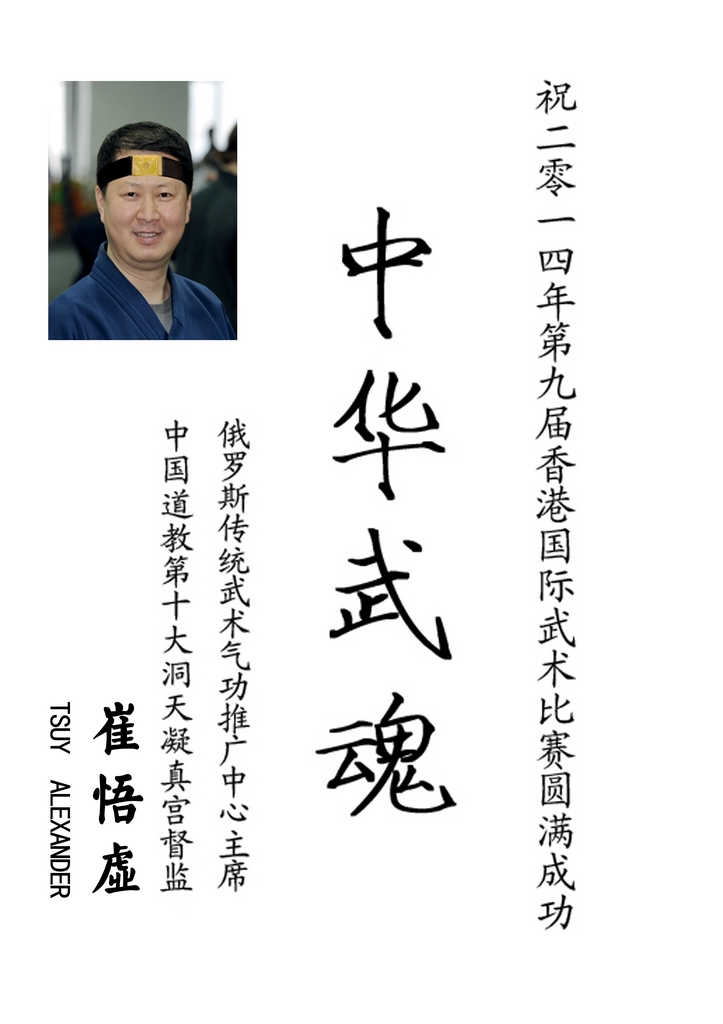 祝二零一四年第九届香港国际武术比赛圆满成功
中华武魂
俄罗斯传统武术气功推广中心主席
中国道教第十大洞天凝真宫督监
崔悟虚
TSUY ALEXANDER